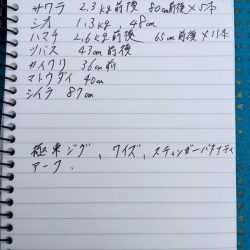 サワラ 2.3kg前後 80cm前後×5本
シオ 1.3kg、48cm
ハマチ 2.6kg前後 65cm前後×11本
ツバス 43cm前後
ガンクリ 36cm前
マトウダイ 40cm
シイラ 87cm
極東ジグ、ワイズ、スティンガーバタフライ
アーク、